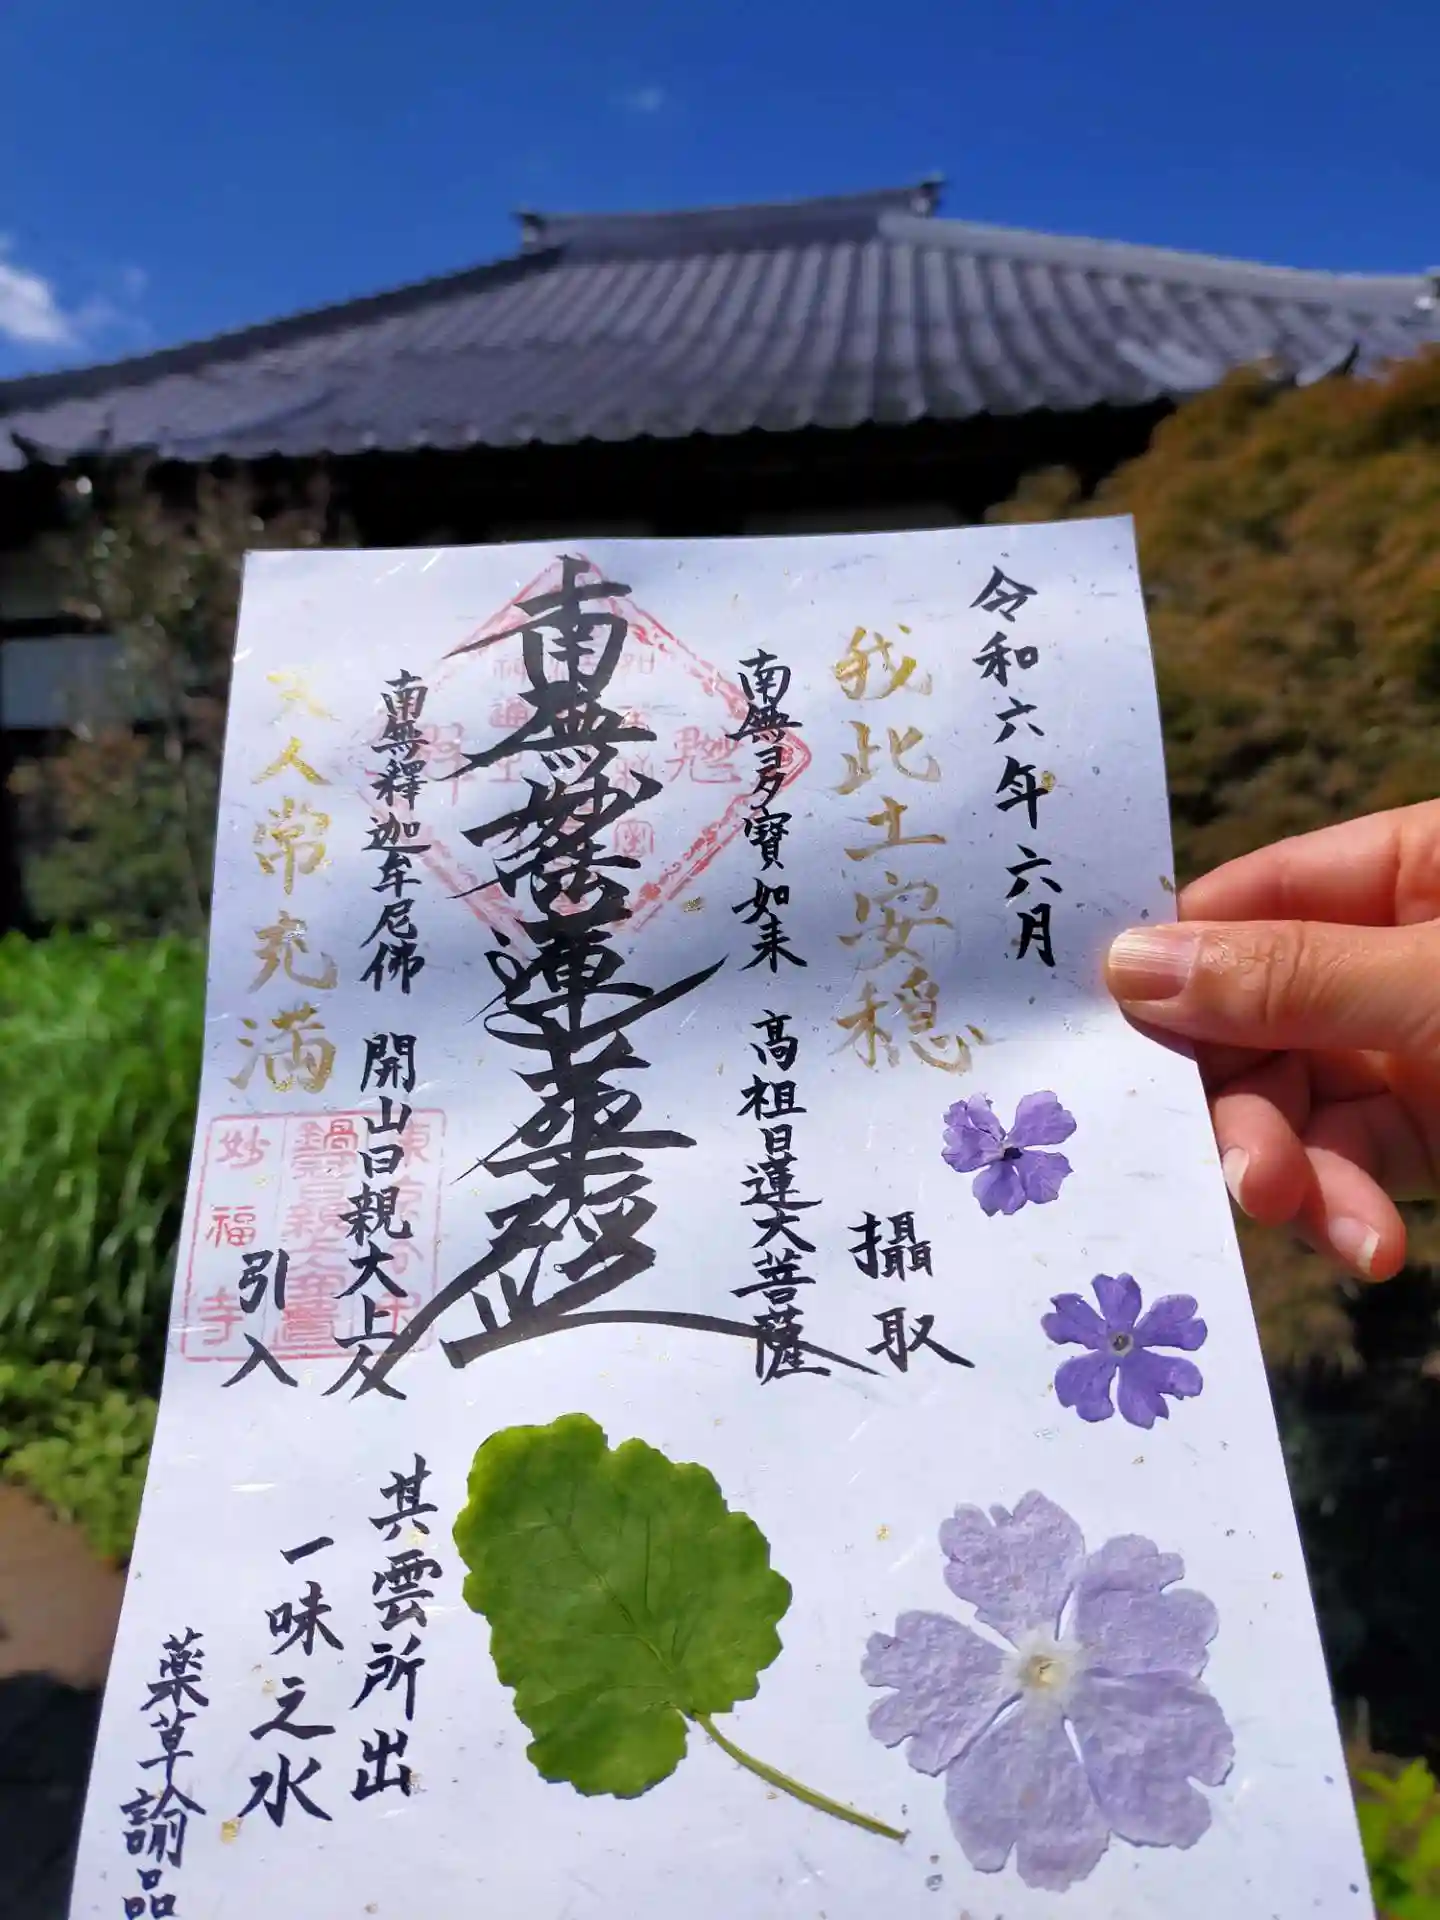 令和六年六月
我此土安穏
南無多寶如来 高祖日蓮大菩薩
攝取
南無妙法蓮華経
南無釋迦牟尼佛 開山日親大上人
引入
天人常充満
妙福寺
其雲所出
一味之水
薬草諭品